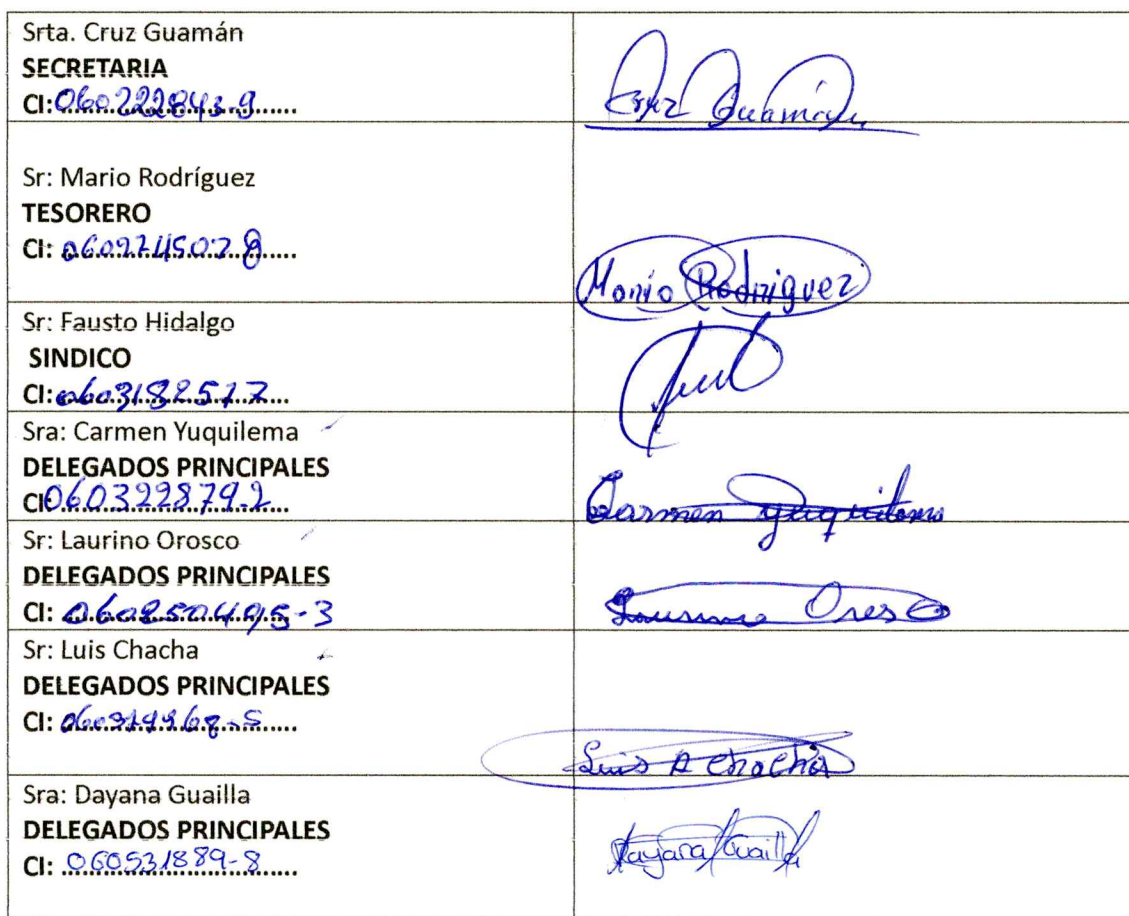 Srta. Cruz Guamán
SECRETARIA
CI: 060222843-9
Cruz Guamán
Sr: Mario Rodríguez
TESORERO
CI: 060274502 8
Mario Rodriguez
Sr: Fausto Hidalgo
SINDICO
CI: 0603182517
Sra: Carmen Yuquilema
DELEGADOS PRINCIPALES
CI 060322879-2
Carmen Yuquilema
Sr: Laurino Orosco
DELEGADOS PRINCIPALES
CI:
Sr: Luis Chacha
DELEGADOS PRINCIPALES
CI:
Luis A Chacha
Sra: Dayana Guailla
DELEGADOS PRINCIPALES
CI: 060531889-8
Dayana Guailla